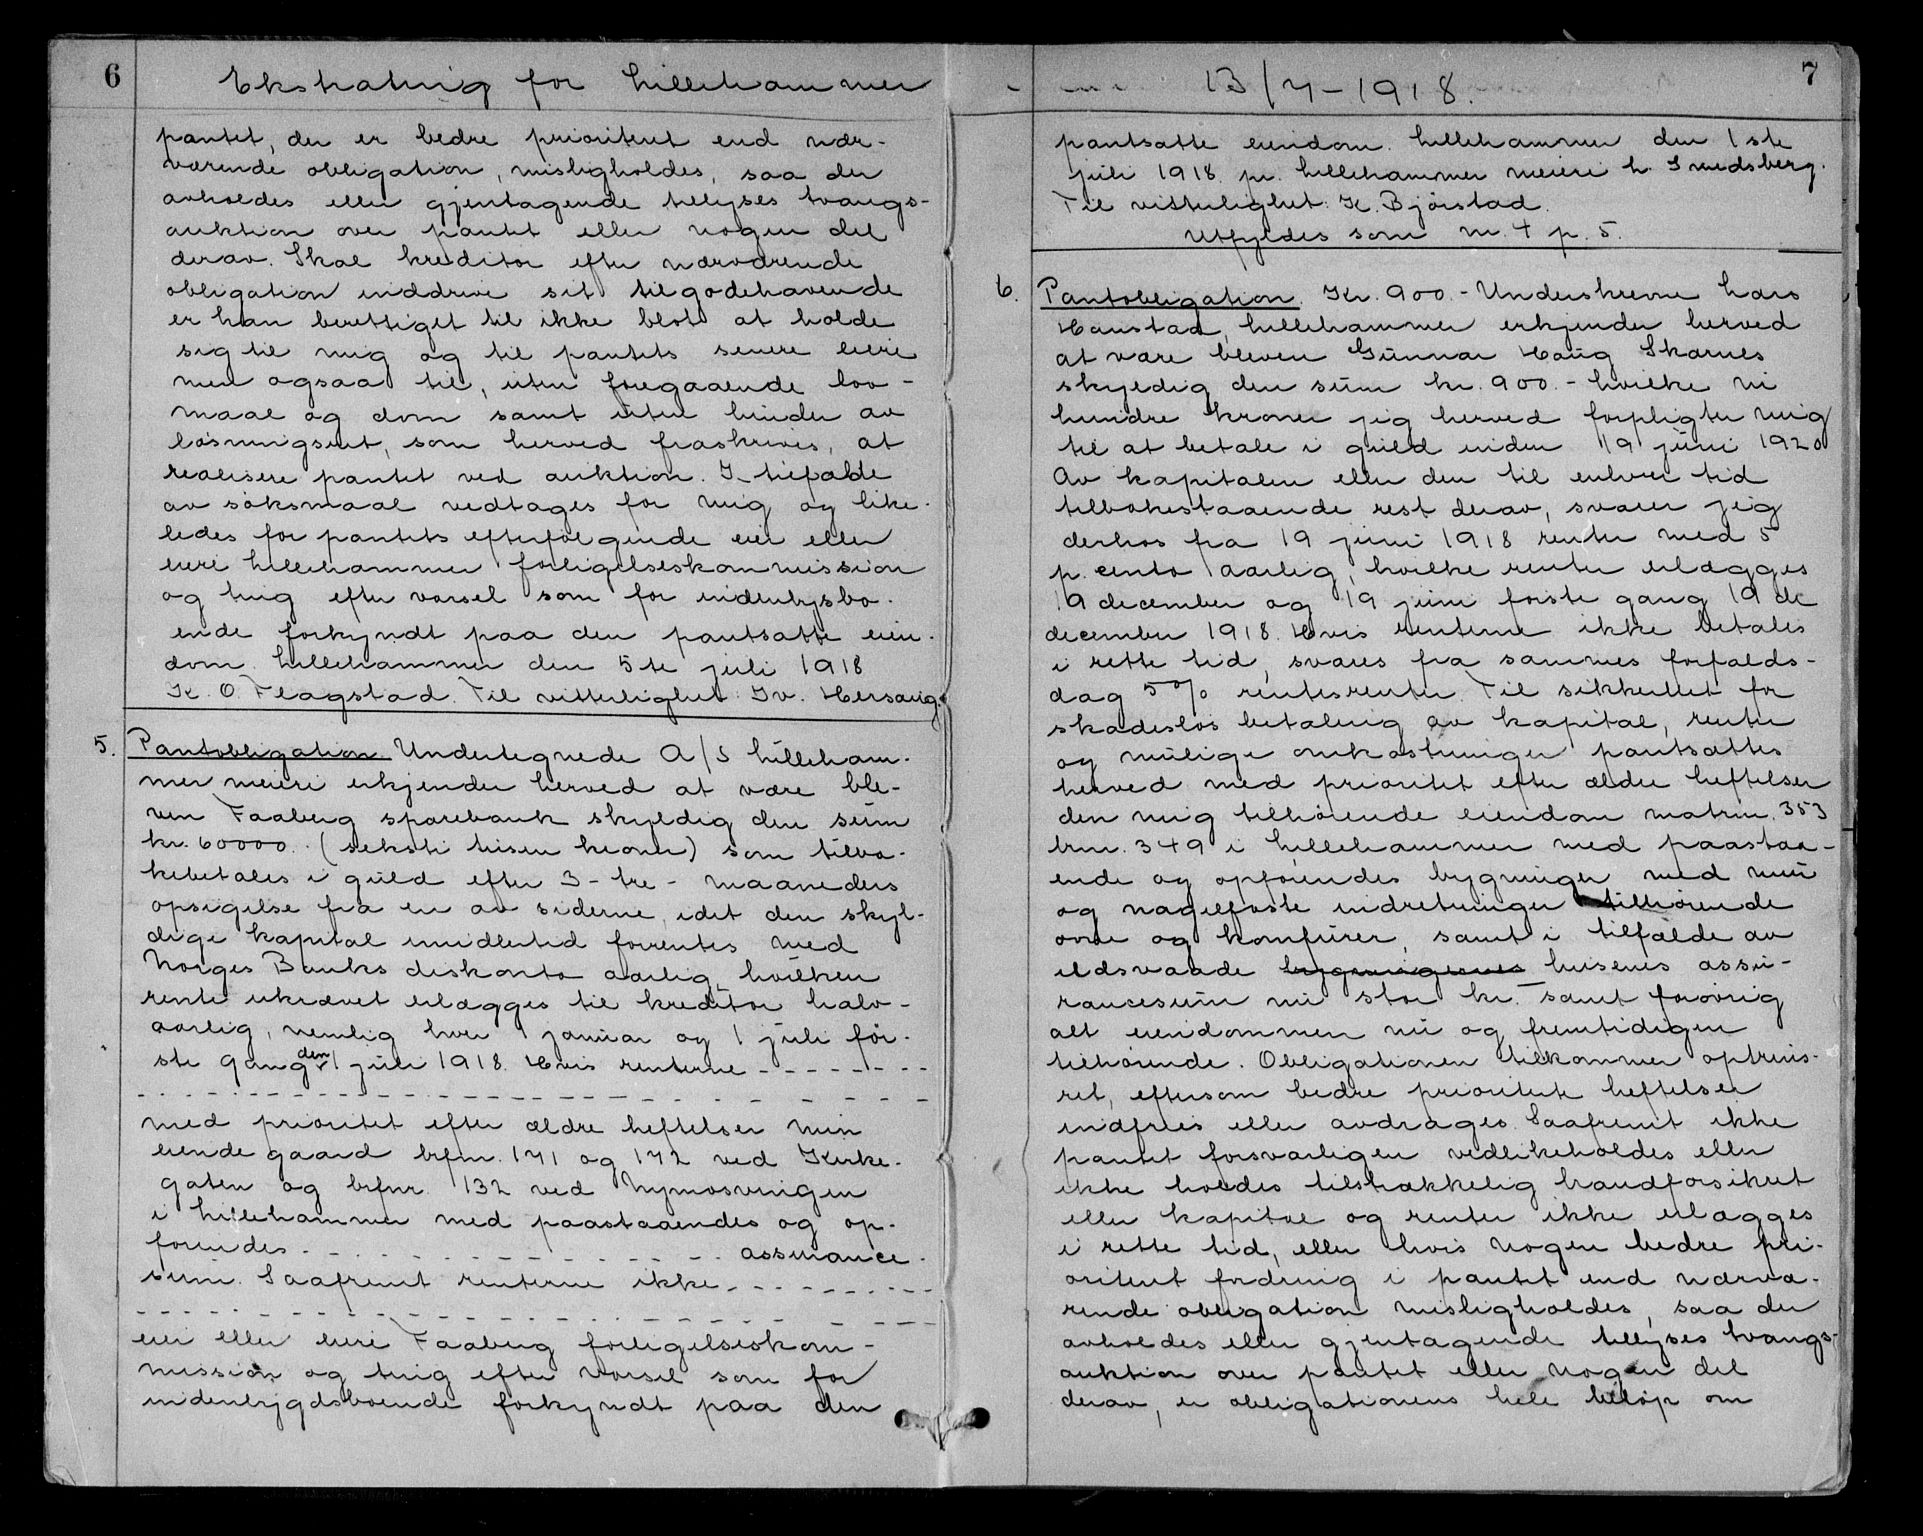 6
Ekstrating for Lillehammer
pantet, der er bedre prioritert end nær-
værende obligation, misligholdes, saa der
avholdes eller gjentagende tillyses tvangs-
auktion over pantet eller nogen del
derav. Skal kreditor efter nærværende
obligation inddrive sit tilgodehavende
er han berettiget til ikke blot at holde
sig til mig og til pantets senere eiere
men ogsaa til, uten foregaaende lov-
maal og dom samt uten hinder av
løsningsret, som herved fraskrives, at
realisere pantet ved auktion. I tilfælde
av søksmaal vedtages for mig og like-
ledes for pantets efterfølgende eier eller
eiere Lillehammer forligelseskommission
og ting efter varsel som for indenbysbo-
ende forkyndt paa den pantsatte eien-
dom. Lillehammer den 5te juli 1918
K. O. Flagstad. Til vitterlighet: Iv. Hersaug.
5. Pantobligation Undertegnede A/S Lilleham-
mer meieri erkjender herved at være ble-
ven Faaberg sparebank skyldig den sum
kr. 60000.- (seksti tusen kroner) som tilba-
kebetales i guld efter 3- tre- maaneders
opsigelse fra en av siderne, idet den skyl-
dige kapital imidlertid forrentes med
Norges Banks diskonto aarlig, hvilken
rente ukrævet erlægges til kreditor halv-
aarlig, nemlig hver 1 januar og 1 juli før-
ste gang den 1 juli 1918. Hvis renterne - - - - - - - -
- - - - - - - - - - - - - - - - - - - -
med prioritet efter ældre heftelser min
eiende gaard brfnr. 171 og 172 ved Kirke-
gaten og brfnr. 132 ved Nymosvingen
i Lillehammer med paastaaendes og op-
førendes - - - - - - - - - - - - - - assurance-
sum. Saafremt renterne ikke - - - - - - - - -
- - - - - - - - - - - - - - - - - - - -
eier eller eiere Faaberg forligelseskom-
mission og ting efter varsel som for
indenbygdsboende forkyndt paa den
7
- - - 13/7-1918.
pantsatte eiendom. Lillehammer den 1ste
juli 1918. pr. Lillehammer meieri L. Smedsberg.
Til vitterlighet: K. Bjørstad.
Utfyldes som nr. 4 p. 5.
6. Pantobligation. Kr. 900.- Underskrevne Lars
Haustad, Lillehammer erkjender herved
at være bleven Gunnar Haug Skarnes
skyldig den sum kr. 900.- hvilke ni
hundre kroner jeg herved forpligter mig
til at betale i guld inden 19 juni 1920
Av kapitalen eller den til enhver tid
tilbakestaaende rest derav, svarer jeg
derhos fra 19 juni 1918 renter med 5
p. cento aarlig, hvilke renter erlægges
19 december og 19 juni første gang 19 de
december 1918. Hvis renterne ikke betales
i rette tid, svares fra sammes forfalds-
dag 5% rentesrenter. Til sikkerhet for
skadesløs betaling av kapital, renter
og mulige omkostninger pantsættes
herved med prioritet efter ældre heftelser
den mig tilhørende eiendom matrnr. 353
brnr. 349 i Lillehammer med paastaa-
ende og opførendes bygninger med mur
og nagelfaste indretninger tilhørende
ovne og komfurer, samt i tilfælde av
ildsvaade bygningernes husenes assu-
rancesum nu stor kr. - samt forøvrig
alt eiendommen nu og fremtidigen
tilhørende. Obligationen tilkommer optrins-
ret, eftersom bedre prioriterte heftelser
indfries eller avdrages. Saafremt ikke
pantet forsvarligen vedlikeholdes eller
ikke holdes tilstrækkelig brandforsikret
eller kapital og renter ikke erlægges
i rette tid, eller hvis nogen bedre pri-
oritert fordring i pantet end nærvæ-
rende obligation misligholdes, saa der
avholdes eller gjentagende tillyses tvangs-
auktion over pantet eller nogen del
derav, er obligationens hele beløp om